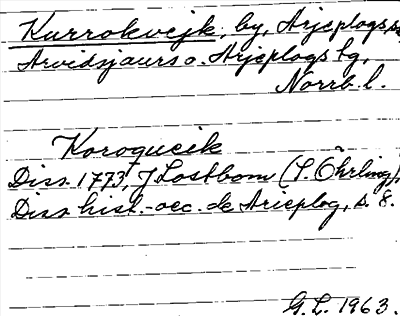 Kurrokvejk, by, Arjeplogs sn
Arvidsjaurs o. Arjeplogs tg,
Norrb. l.
Koroqueik
Diss. 1773, J Lostbom (L. Öhrling),
Diss. hist.-oec. de Arieplog, s. 8.
G. L. 1963.